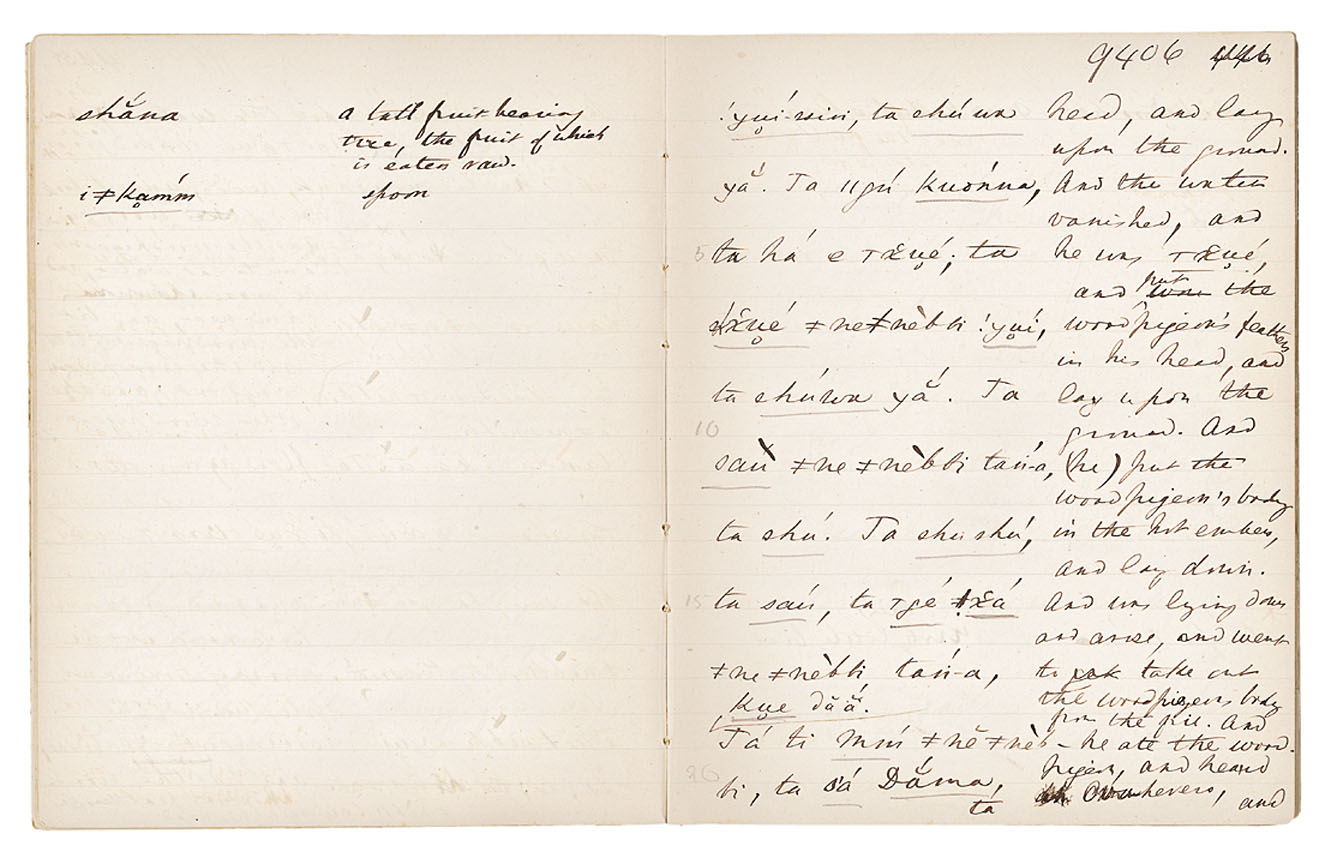 shăna
a tall fruit bearing
tree, the fruit of which
is eaten raw.
i ǂkamḿ
spoon
9406
ta shúwa
yắ. Ta ǁgú kuónna,
5 ta há e ; ta
ǂneǂnèbbi
ta shúwa yắ. Ta
10
saṅ̀ ǂneǂnèbbi taṅ́-a,
ta shú. Ta shushú,
15 ta saṅ́, ta
ǂneǂnèbbi taṅ́-a,
dăắ.
Tá ti mḿ ǂnĕǂnèb-
20 bi, ta sá Dăḿa,
ta
head, and lay
upon the ground.
And the water
vanished, and
he was
and put the
woodpigeon's feathers
in his head, and
lay upon the
ground. And
(he) put the
woodpigeon's body
in the hot embers,
and lay down.
And was lying down
and arose, and went
to take out
the woodpigeon's body
from the fire. And
he ate the wood-
pigeon, and heard
Ovaherero, and